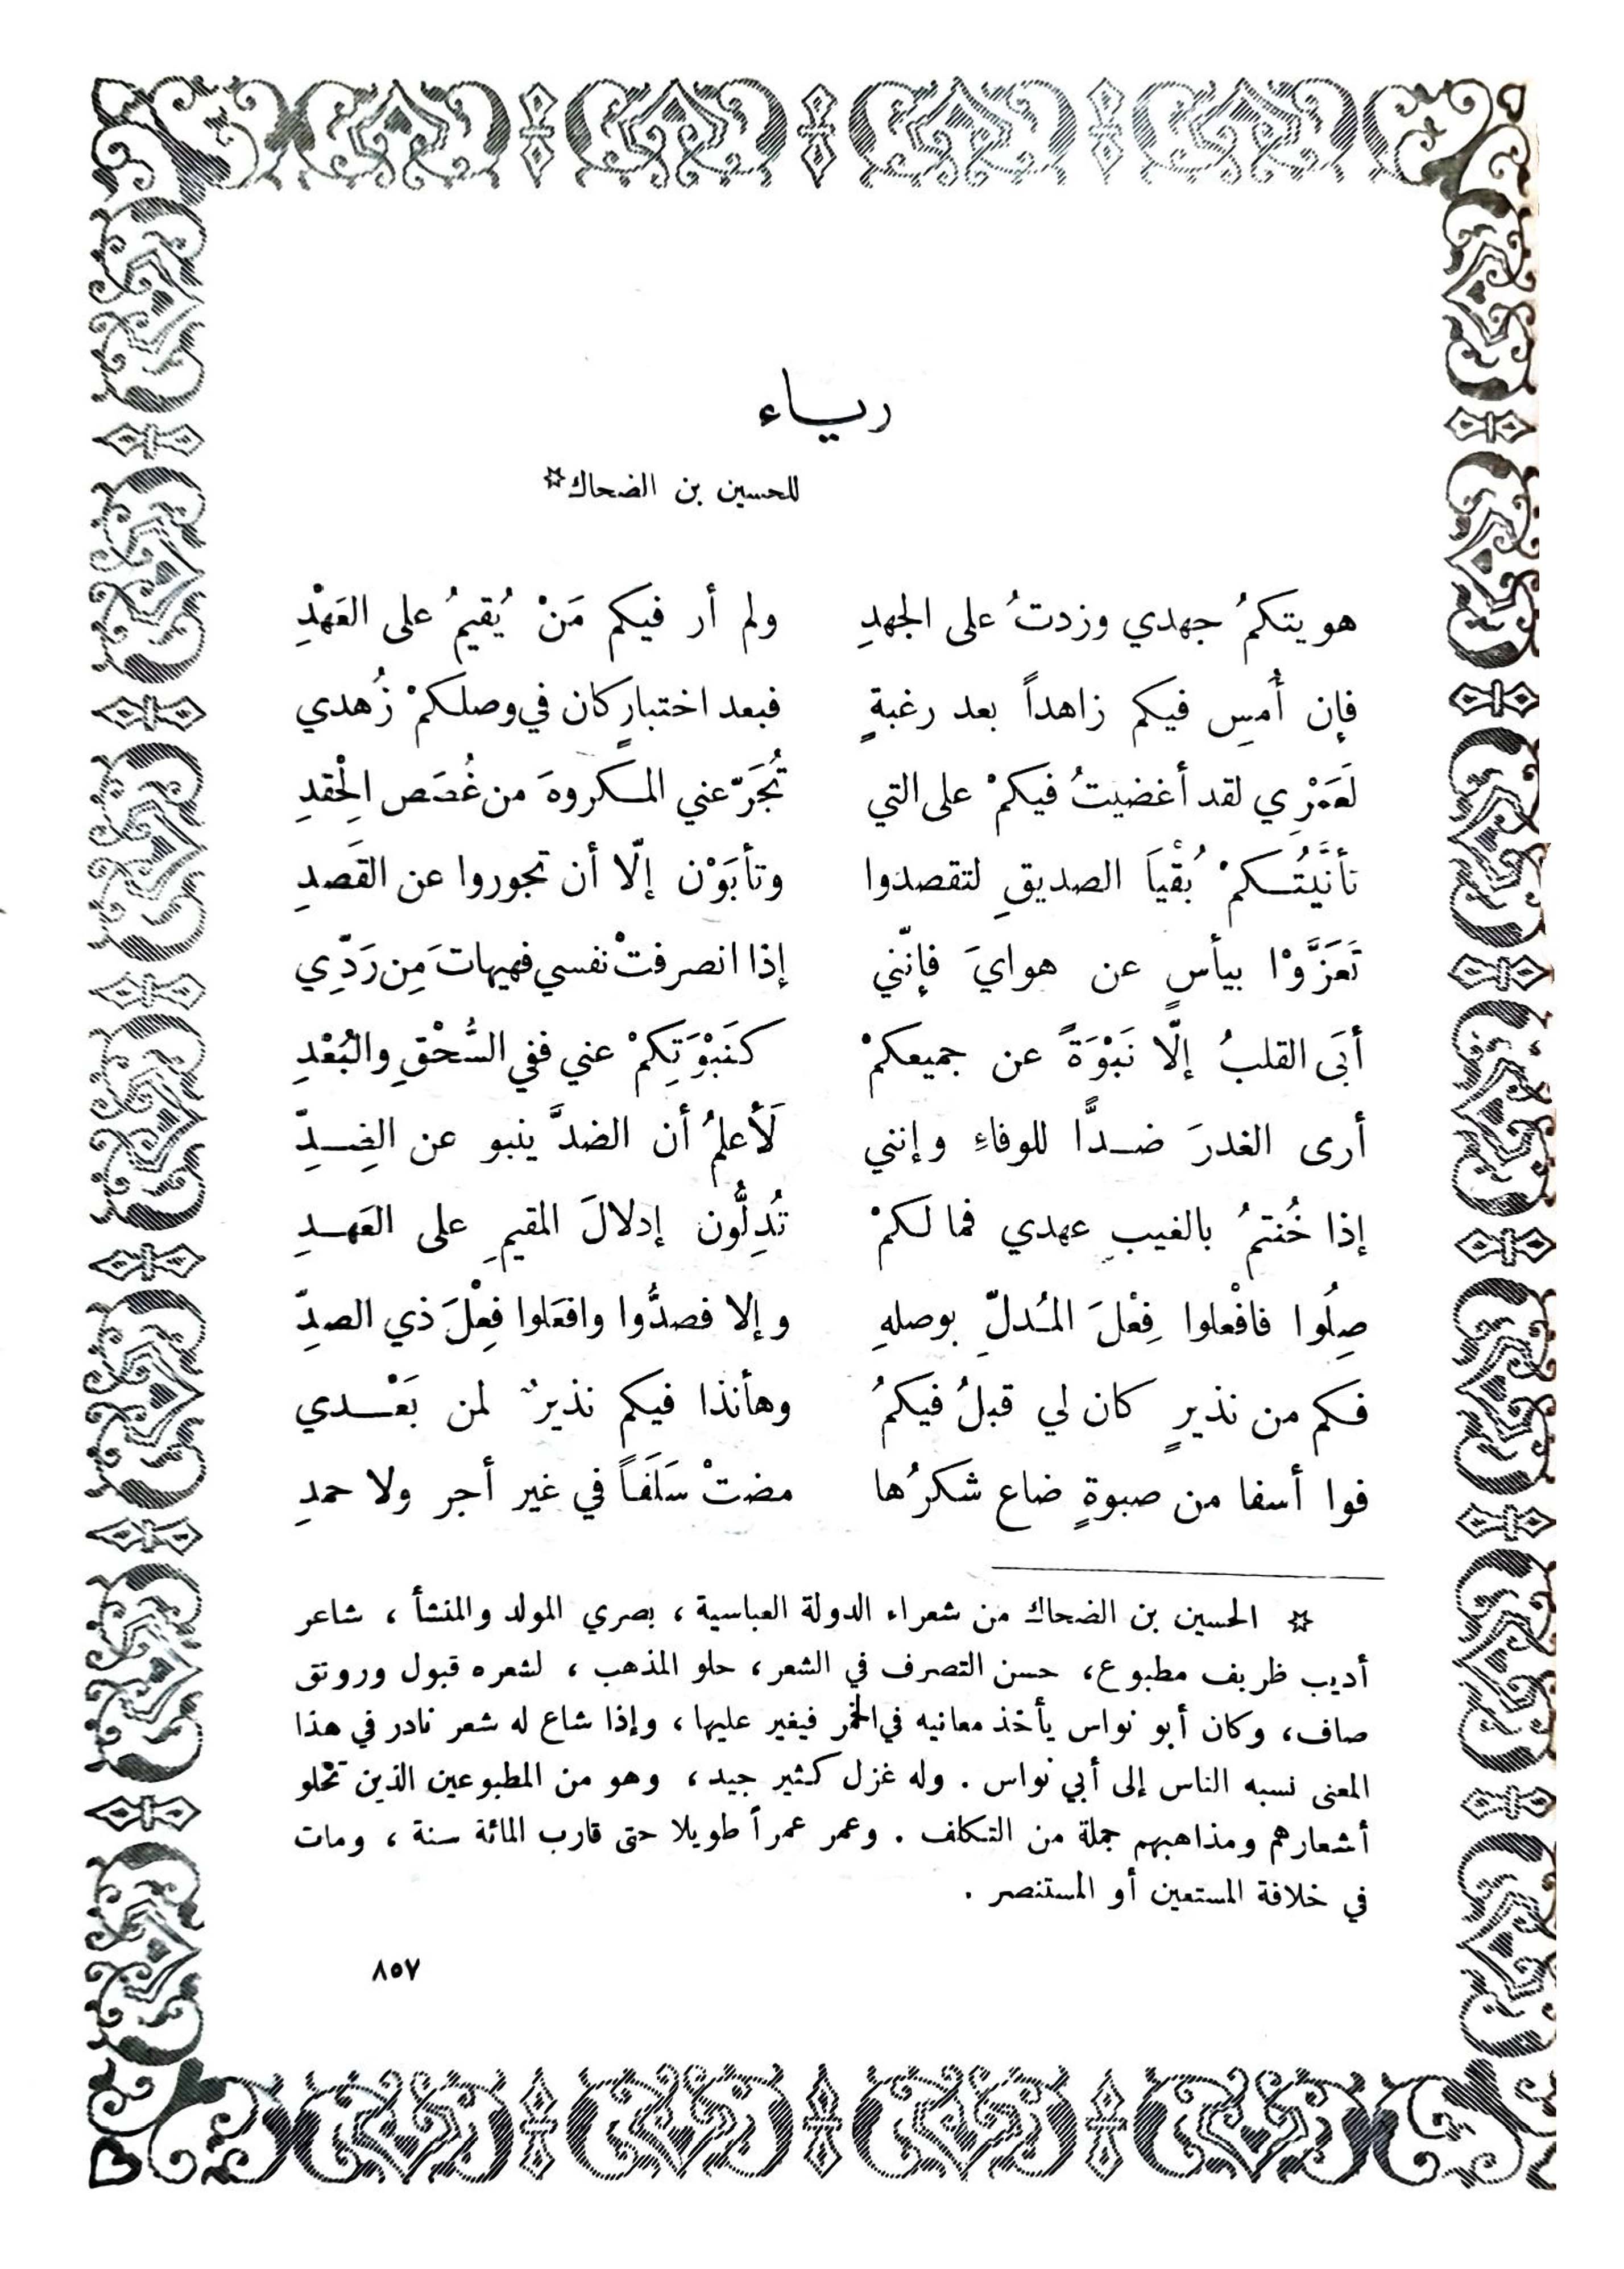 رياء
للحسين بن الضحاك☆
هويتكمُ جهدي وزدتُ على الجهدِ ولم أر فيكم مَنْ يُقيمُ على العَهْدِ
فإن أُمسِ فيكم زاهداً بعد رغبةٍ فبعد اختبارٍ كان في وصلكمْ زُهدي
لَعَمْرِي لقد أغضيتُ فيكمْ على التي تُجَرّعني المكروهَ من غُصَص الحِْقدِ
تأنَّيتُكمْ بُقْياَ الصديقِ لتقصدوا وتأبَوْن إلّا أن تجوروا عن القَصدِ
تَعَزَّوْا بيأسٍ عن هوايَ فإنّني إذا انصرفتْ نفسي فهيهاتَ مِن رَدِّي
أبَى القلبُ إلّا نَبْوَةً عن جميعكمْ كنَبْوَتِكمْ عني ففي السُّحْقِ والبُعْدِ
أرى الغدرَ ضدًّا للوفاءِ وإنني لَأعلمُ أن الضدَّ ينبو عن الضِدِّ
إذا خُنتمُ بالغيبِ عهدي فما لكمْ تُدِلُّون إدلالَ المقيمِ على العَهدِ
صِلُوا فافْعلوا فِعْلَ المُدلِّ بوصلهِ وإلا فصدُّوا وافعَلوا فِعْلَ ذي الصدِّ
فكم من نذيرٍ كان لي قبلُ فيكمُ وهأنذا فيكم نذيرٌ لمن بَعْدي
فوا أسفا من صبوةٍ ضاع شكرُها مضتْ سَلَفاً في غير أجر ولا حمدِ
☆ الحسين بن الضحاك من شعراء الدولة العباسية ، بصري المولد والمنشأ ، شاعر
أديب ظريف مطبوع ، حسن التصرف في الشعر ، حلو المذهب ، لشعره قبول ورونق
صاف ، وكان أبو نواس يأخذ معانيه في الخمر فيغير عليها ، وإذا شاع له شعر نادر في هذا
المعنى نسبه الناس إلى أبي نواس . وله غزل كثير جيد ، وهو من المطبوعين الذين تخلو
أشعارهم ومذاهبهم جملة من التكلف . وعمر عمراً طويلا حتى قارب المائة سنة ، ومات
في خلافة المستعين أو المستنصر .
٨٥٧